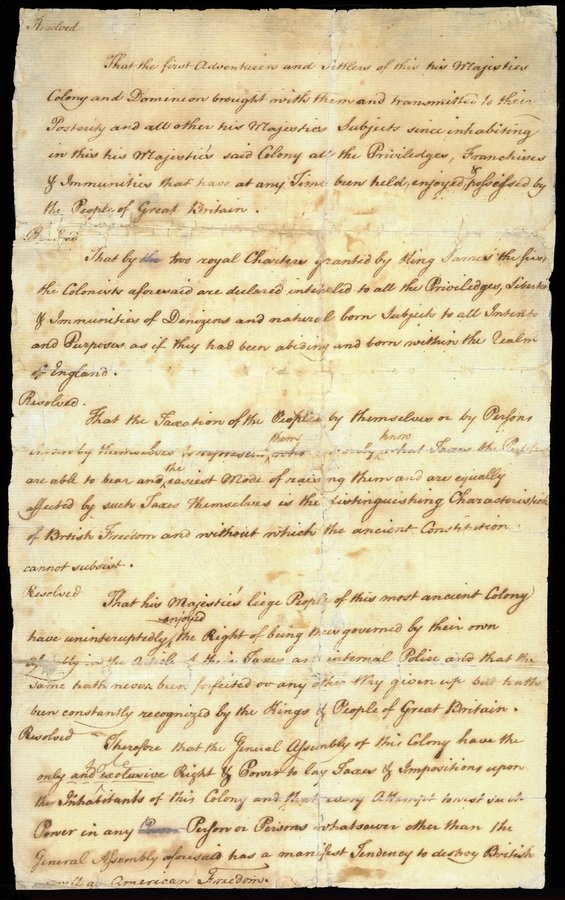 Resolved
That the first Adventurers and Settlers of this his Majesties
Colony and Dominion brought with them and transmitted to their
Posterity and all other his Majesties Subjects since inhabiting
in this his Majestie's said Colony all the Priviledges, Franchises
& Immunities that have at any Time been held, enjoyed, & possessed by
the People of Great Britain.
Resolved
That by the two royal Charters granted by King James the first
the Colonists aforesaid are declared intitled to all the Priviledges, Liberties
& Immunities of Denizens and natural born Subjects to all Intents
and Purposes as if they had been abiding and born within the Realm
of England.
Resolved.
That the Taxation of the People by themselves or by Persons
chosen by themselves to represent them who can only know what Taxes the People
are able to bear and the easiest Mode of raising them and are equally
affected by such Taxes themselves is the distinguishing Characteristick
of British Freedom and without which the ancient Constitution
cannot subsist.
Resolved
That his Majestie's liege People of this most ancient Colony
have uninteruptedly enjoyed the Right of being thus governed by their own
Assembly in the Article of their Taxes and internal Police and that the
same hath never been forfeited or any other Way given up but hath
been constantly recognized by the Kings & People of Great Britain.
Resolved
Therefore that the General Assembly of this Colony have the
only and sole exclusive Right & Power to lay Taxes & Impositions upon
the Inhabitants of this Colony and that every Attempt to vest such
Power in any Person or Persons whatsoever other than the
General Assembly aforesaid has a manifest Tendency to destroy British
as well as American Freedom.